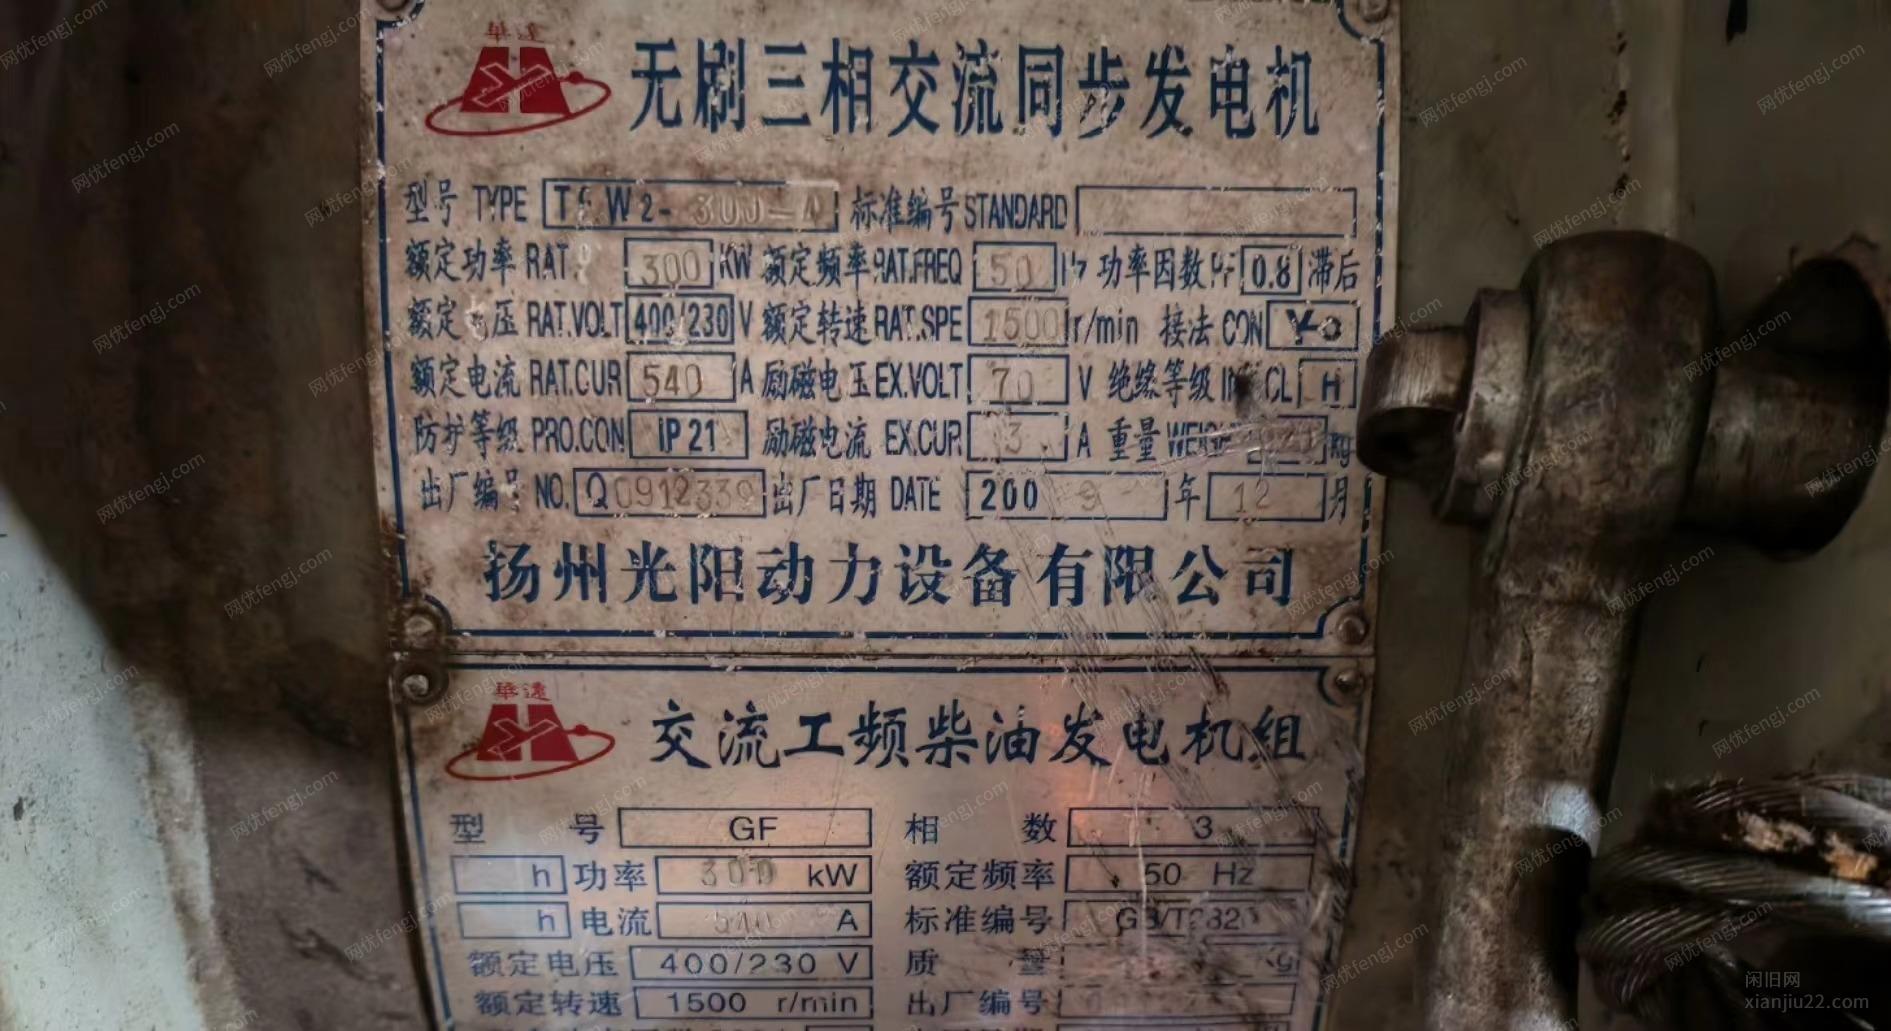 華達
无刷三相交流同步发电机
型号 TYPE TFW2-300-4 标准编号 STANDARD
额定功率 RAT. 300 KW 额定频率 RAT.FREQ 50 功率因数 0.8 滞后
额定电压 RAT.VOLT 400/230 V 额定转速 RAT.SPE 1500 r/min 接法 CON
额定电流 RAT.CUR 540 A 励磁电压 EX.VOLT 70 V 绝缘等级 CL H
防护等级 PRO.CON IP21 励磁电流 EX.CUR 3 A 重量 WEIGH kg
出厂编号 NO. Q0912339 出厂日期 DATE 2009 年 12 月
扬州光阳动力设备有限公司
華達
交流工频柴油发电机组
型 号 GF 相 数 3
h 功率 300 kW 额定频率 50 Hz
h 电流 540 A 标准编号
额定电压 400/230 V 质 量 kg
额定转速 1500 r/min 出厂编号
网优fengj.com
闲旧网
xianjiu22.com